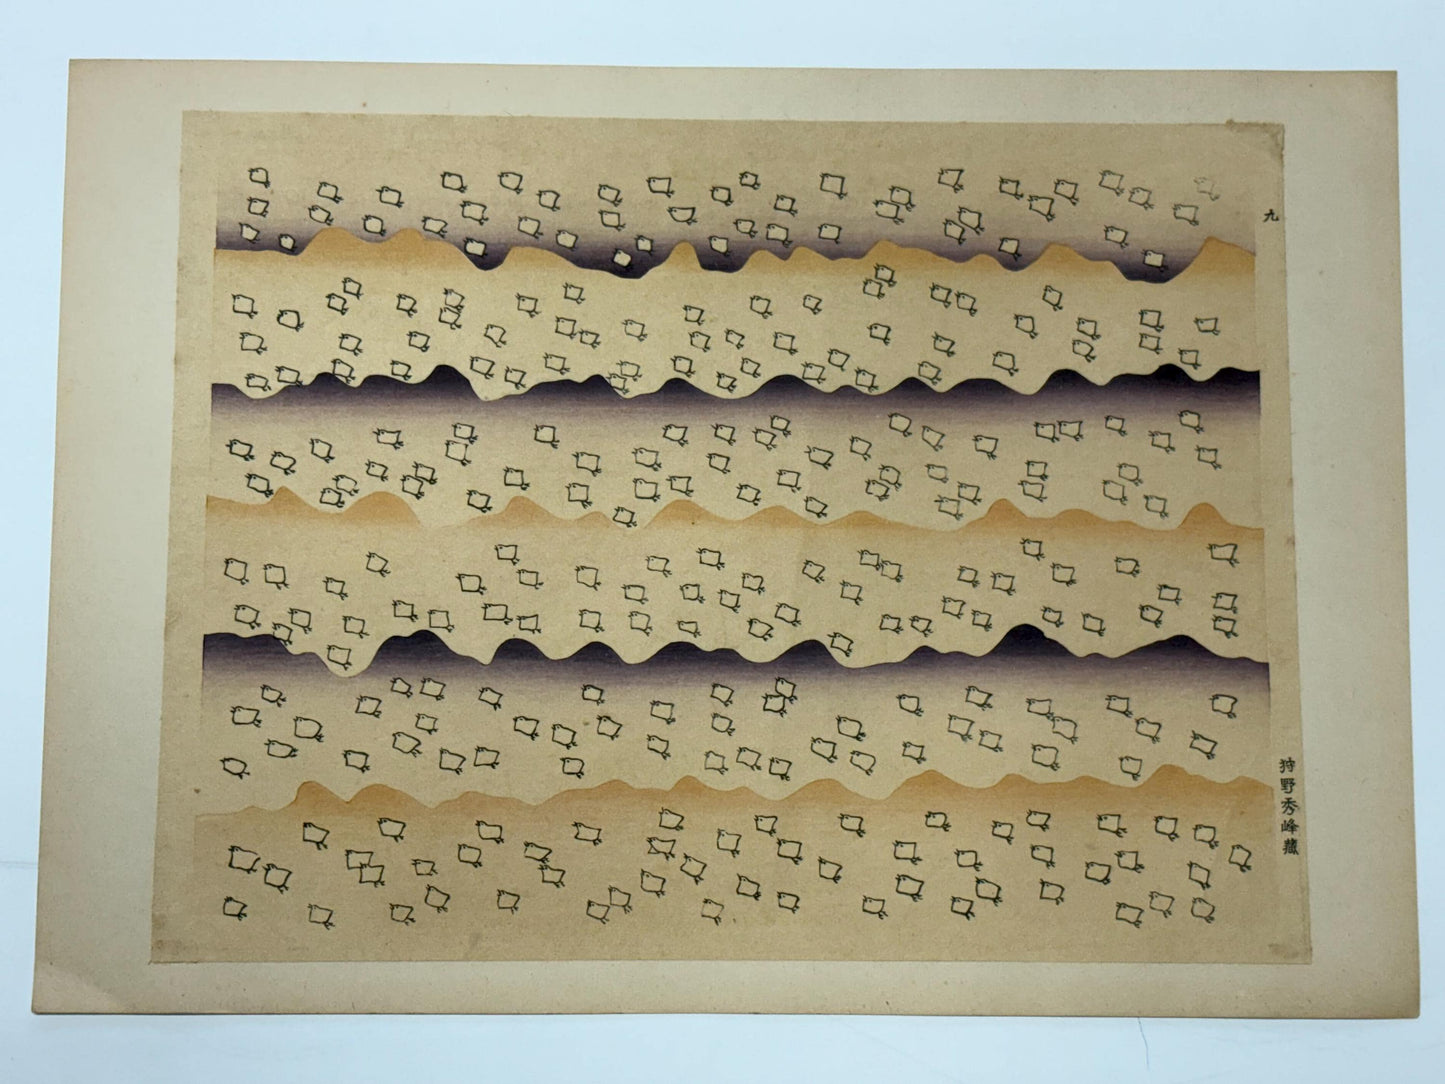 九
狩野秀峰蔵